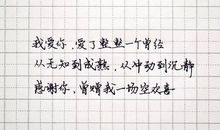 我爱你，爱了整整一个曾经
从无知到成熟，从冲动到沉静
感谢你，曾赠我一场空欢喜